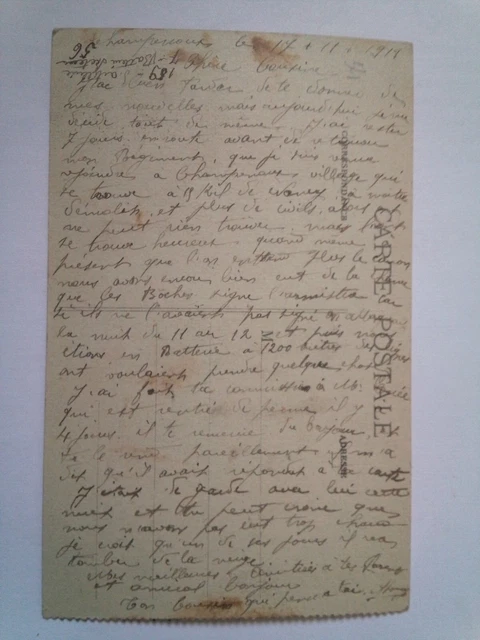 Champenoux le 17 + 11 + 1918
Chère Cousine
J'ai bien tardé de te donner de
mes nouvelles, mais aujourd'hui je me
décide tout de même. J'ai rester
7 jours en route avant de retrouver
mon Régiment, que je suis venu
rejoindre à Champenoux village qui
se trouve à 15 Kil de Nancy, à moitié
démolit, et plus de civils, alors
ne peut rien trouver, mais
se trouve heureux quand même
présent que l'on entend plus le canon
nous avons encore bien eut de la
que les Boches signe l'armistice car
si ils ne l'avaient pas signé
la nuit du 11 au 12 et puis nous
étions en Batterie à 1200 mètres des
ont voulaient prendre quelque chose
J'ai fait ta commission à
qui est rentré de perme il y
4 jours. il te remercie du bonjour et
te le pareillement, il m'a
dit qu'il avait répondu à ta carte
J'étais de garde avec lui cette
nuit et tu peut croire que
nous n'avons pas eut trop chaud
je croit qu'un de ses jours il va
tomber de la neige
Mes meilleures amitiés à tes
et amical bonjour
Ton cousin qui pense a toi
CARTE POSTALE
CORRESPONDANCE
ADRESSE